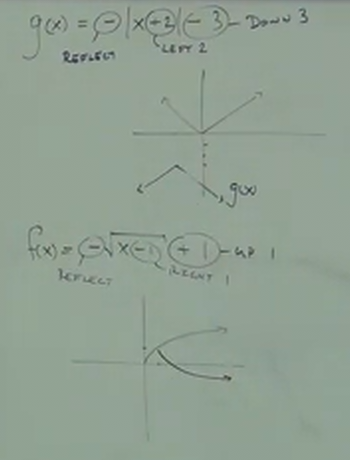 g(x) = - |x+2| - 3 - DOWN 3
REFLECT LEFT 2
g(x)
f(x) = - √x-1 + 1 - UP 1
REFLECT RIGHT 1